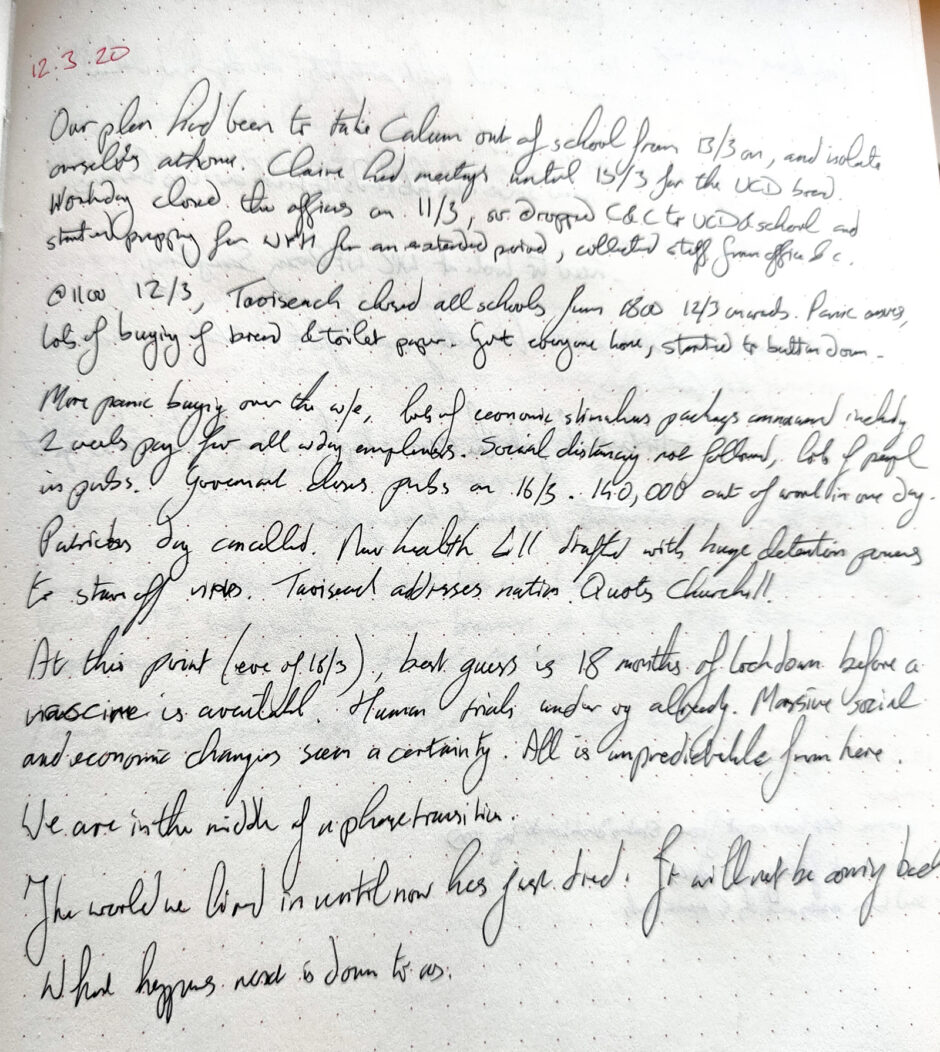 12.3.20
Our plan had been to take Calum out of school from 13/3 on, and isolate
ourselves at home. Claire had meetings until 15/3 for the UCD
Workday closed the offices on 11/3, so dropped C&C to UCD & school and
started prepping for WFH for an extended period, collected stuff from office &c.
@1100 12/3, Taoiseach closed all schools from 1800 12/3 onwards. Panic ensues,
lots of buying of bread & toilet paper. Got everyone home, started to button down.
More panic buying over the w/e, lots of economic stimulus packages announced including
2 weeks pay for all wday employees. Social distancing not followed, lots of people
in pubs. Government closes pubs on 16/3. 140,000 out of work in one day.
Patricks day cancelled. New health bill drafted with huge detention powers
to stave off virus. Taoiseach addresses nation. Quotes Churchill.
At this point (eve of 18/3), best guess is 18 months of lockdown before a
vaccine is available. Human trials under way already. Massive social
and economic changes seem a certainty. All is unpredictable from here.
We are in the middle of a phase transition.
The world we lived in until now has just died. It will not be coming back
What happens next is down to us.